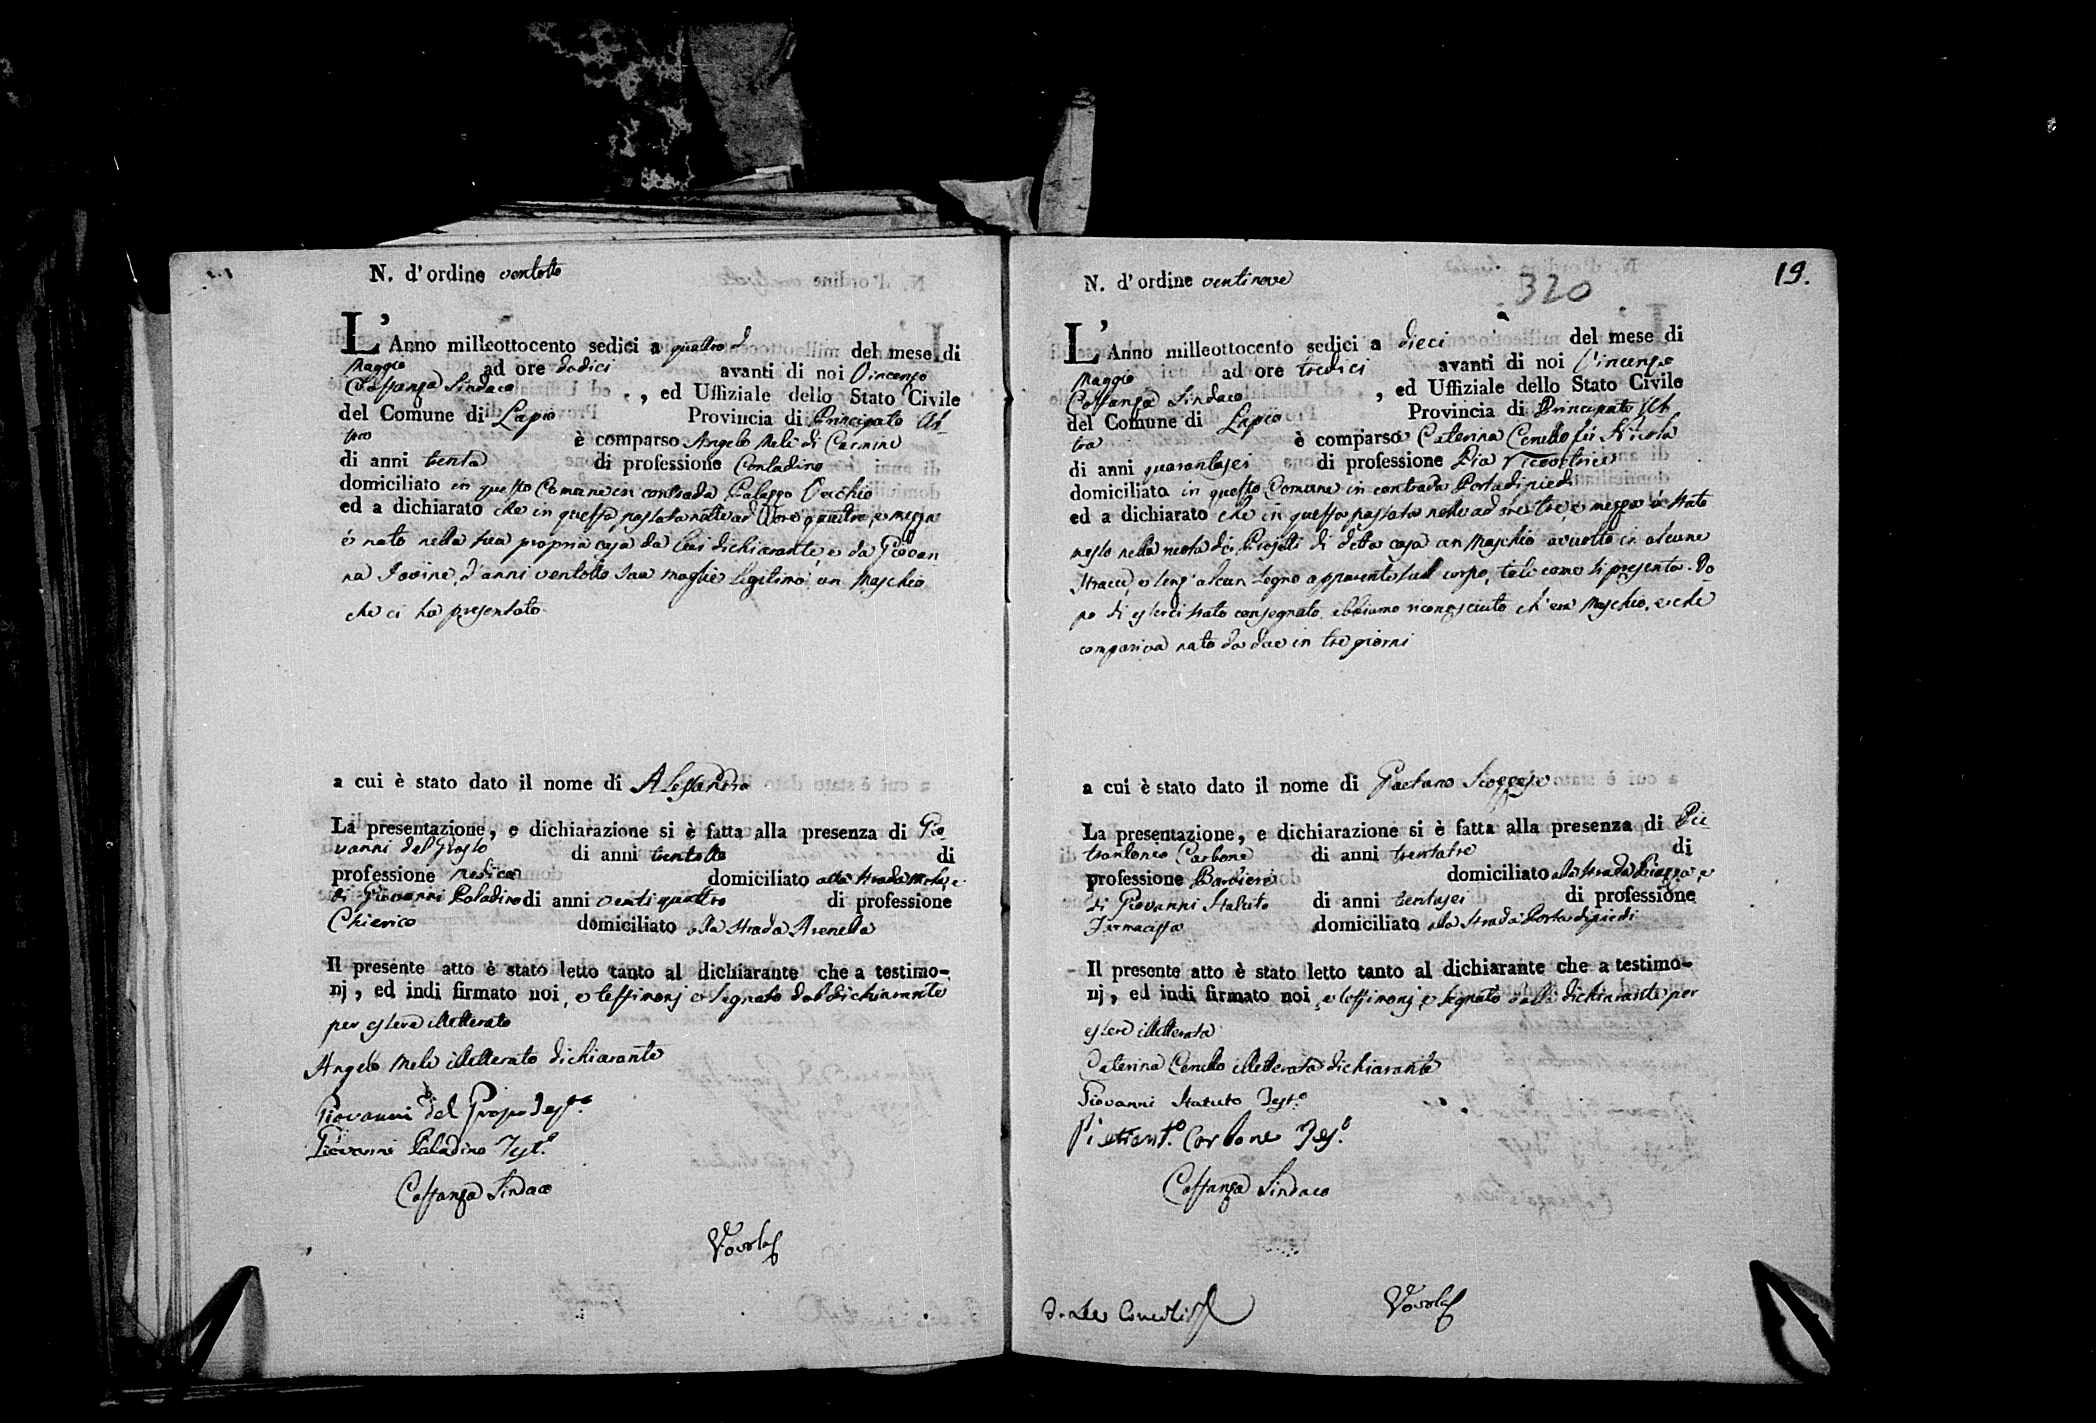 N. d'ordine ventotto
L'Anno milleottocento sedici a quattro d del mese di
Maggio ad ore dodici avanti di noi Vincenzo
Costanza Sindaco , ed Uffiziale dello Stato Civile
del Comune di Lapio Provincia di Principato Ul-
tro è comparso Angelo Mele di Carmine
di anni trenta di professione Contadino
domiciliato in questo Comune in contrada Palazzo Vecchio
ed a dichiarato che in questa passata notte ad ore quattro, e mezza
è nato nella sua propria casa da lui dichiarante, e da Giovan
na Iovine, d'anni ventotto sua moglie legitima, un Maschio
che ci ha presentato
a cui è stato dato il nome di Alessandro
La presentazione, e dichiarazione si è fatta alla presenza di Gio-
vanni del Grosso di anni trentotto di
professione Medico domiciliato alla strada
di Giovanni Paladino di anni venti quattro di professione
Chierico domiciliato alla strada Arenella
Il presente atto è stato letto tanto al dichiarante che a testimo-
nj, ed indi firmato noi, e testimonj e segnato dal dichiarante
per essere illetterato
Angelo Mele illetterato dichiarante
Giovanni del Grosso Test.o
Giovanni Paladino Test.o
Costanza Sindaco
19.
320
N. d'ordine ventinove
L'Anno milleottocento sedici a dieci del mese di
Maggio ad ore tredici avanti di noi Vincenzo
Costanza Sindaco , ed Uffiziale dello Stato Civile
del Comune di Lapio Provincia di Principato Ul
tra è comparsa Caterina fù Nicola
di anni quarantasei di professione Pia Ricevitrice
domiciliata in questo Comune in contrada Porta di piedi
ed a dichiarato che in questa passata notte ad ore tre, e mezza è stato
messo nella ruota dei Projetti di detta casa un Maschio avvolto in alcune
stracci, e senz'alcun segno apparente sul corpo, tale come si presenta. Do
po di esserci stato consegnato abbiamo riconosciuto ch'era Maschio, e che
compariva nato da due in tre giorni
a cui è stato dato il nome di Gaetano
La presentazione, e dichiarazione si è fatta alla presenza di Pie
trantonio Carbone di anni trentatre di
professione Barbiere domiciliato alla strada Piazza, e
di Giovanni Statuto di anni trentasei di professione
Farmacista domiciliato alla strada Porta di piedi
Il presente atto è stato letto tanto al dichiarante che a testimo-
nj, ed indi firmato noi, e testimonj, e segnato dalla dichiarante per
essere illetterata
Caterina illetterata dichiarante
Giovanni Statuto Test.o
Pietrant.o Carbone Tes.o
Costanza Sindaco